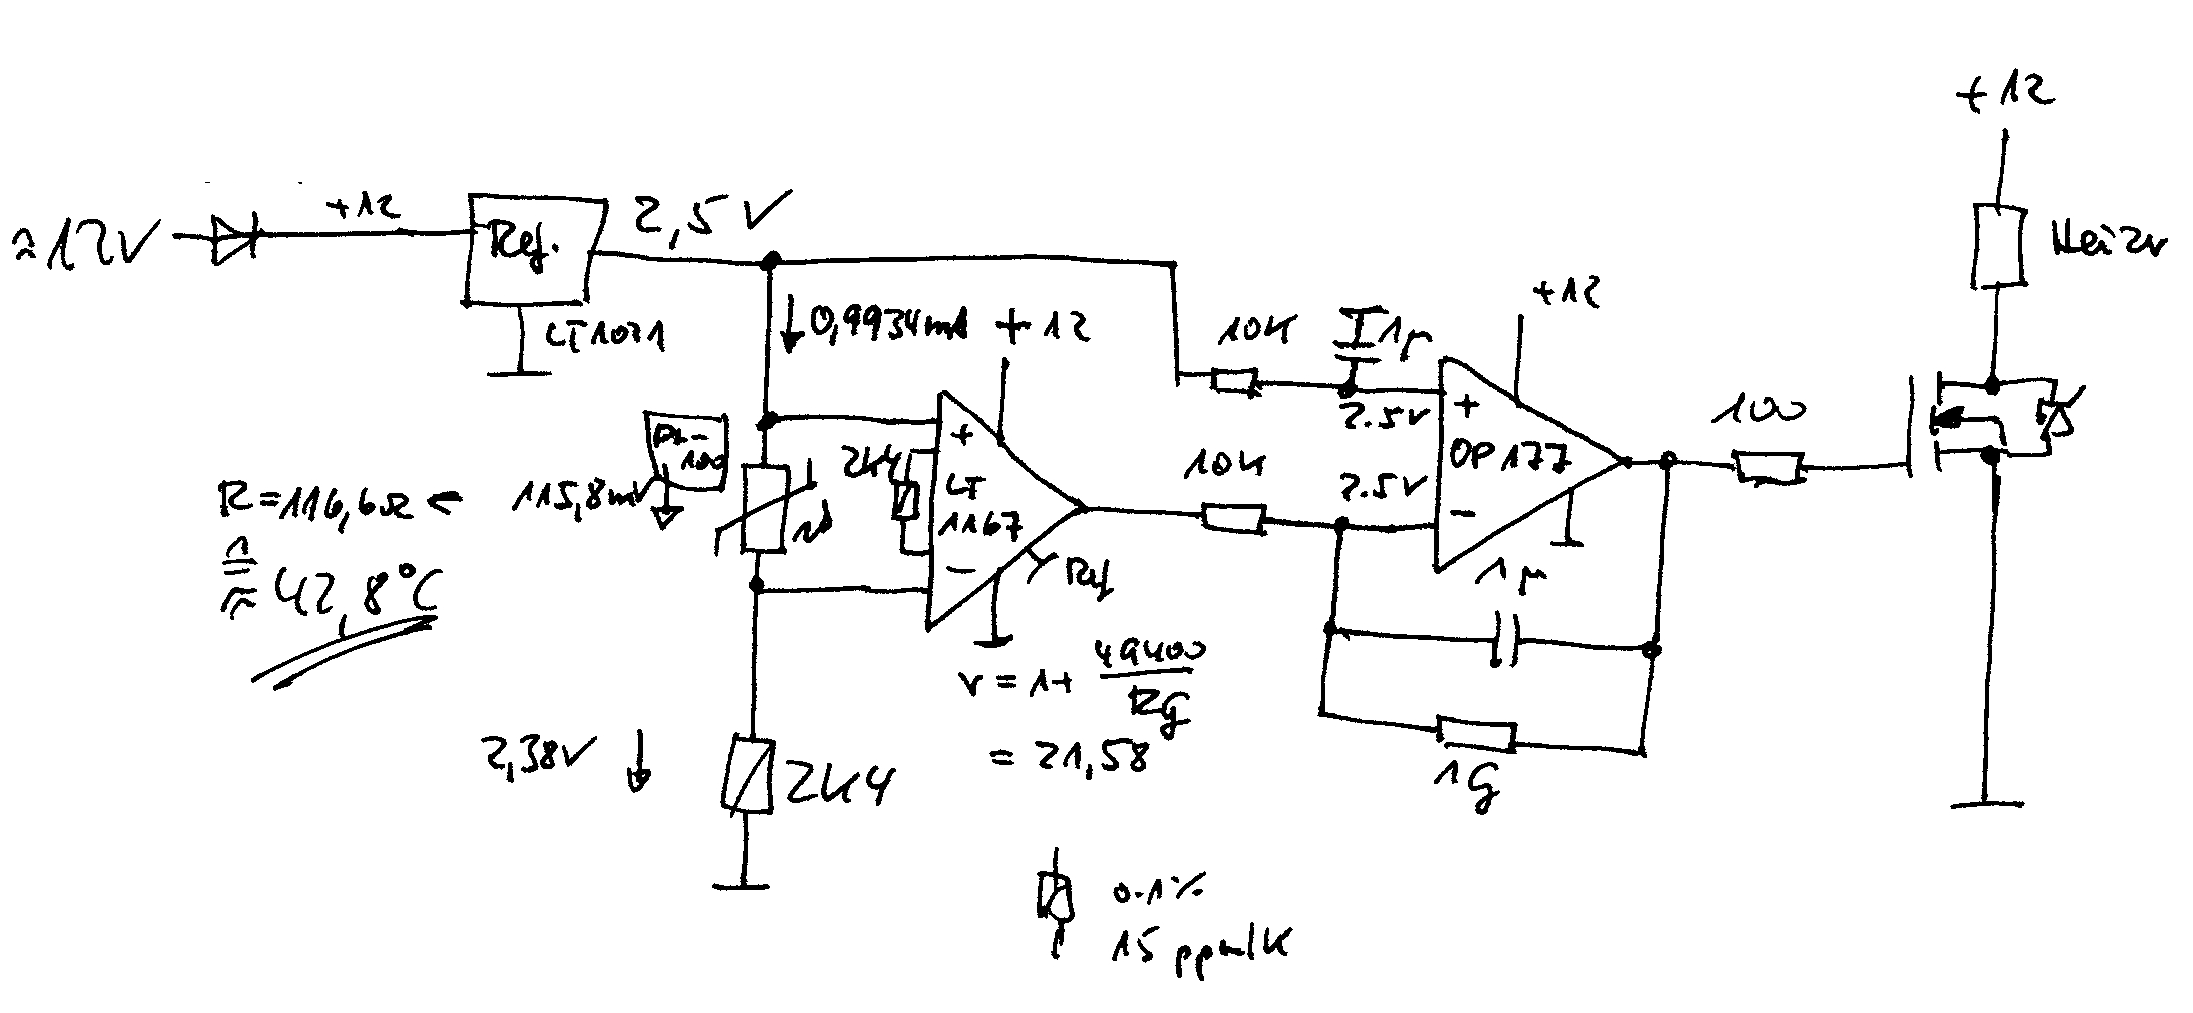 ≈12V
+12
Ref.
LT1021
2,5V
0,9934mA
+12
Pt-
100
R=116,6Ω ←
115,8mV
≙
≈42,8°C
2K4
+
LT
1167
-
Ref
v = 1+ 49400/RG
= 21,58
2,38V
2K4
0.1%
15 ppm/K
10K
1µ
2.5V
10K
2.5V
+12
+
OP177
-
1µ
1G
100
+12
Heizer